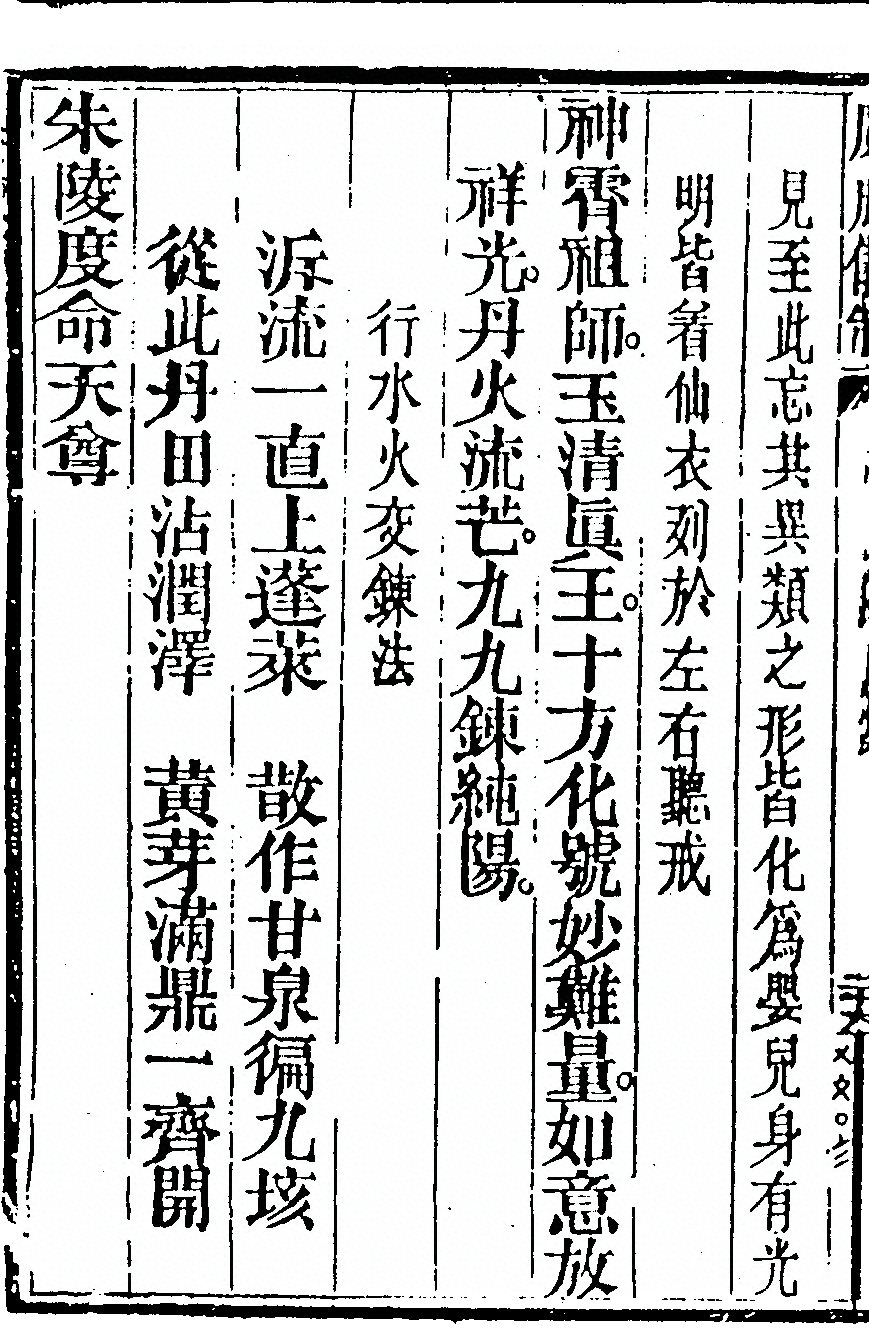 見至此忘其異類之形皆化爲嬰兒身有光
明皆着仙衣列於左右聽戒
神霄祖師。玉清眞王。十方化號妙難量。如意放
祥光。丹火流芒。九九鍊純陽。
行水火交鍊法
泝流一直上蓬萊　散作甘泉徧九垓
從此丹田沾潤澤　黃芽滿鼎一齊開
朱陵度命天尊